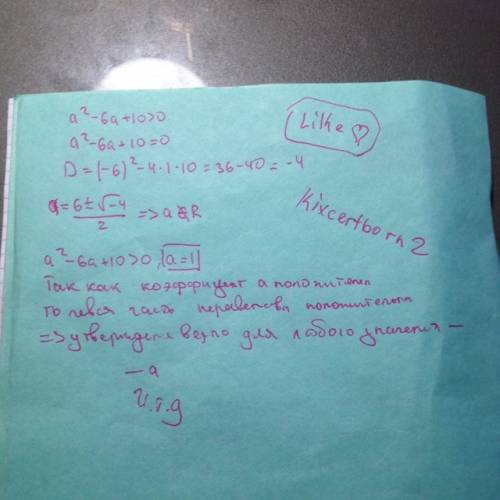 a²-6a+10>0
a²-6a+10=0
D=(-6)²-4·1·10=36-40=-4
a=6±√-4/2 => a∉R
Like ♡
Kixcertborn2
a²-6a+10>0, a=1
Так как коэффициент а положителен
то левая часть неравенства положительна
=> утверждение верно для любого значения —
— а
ч.т.д